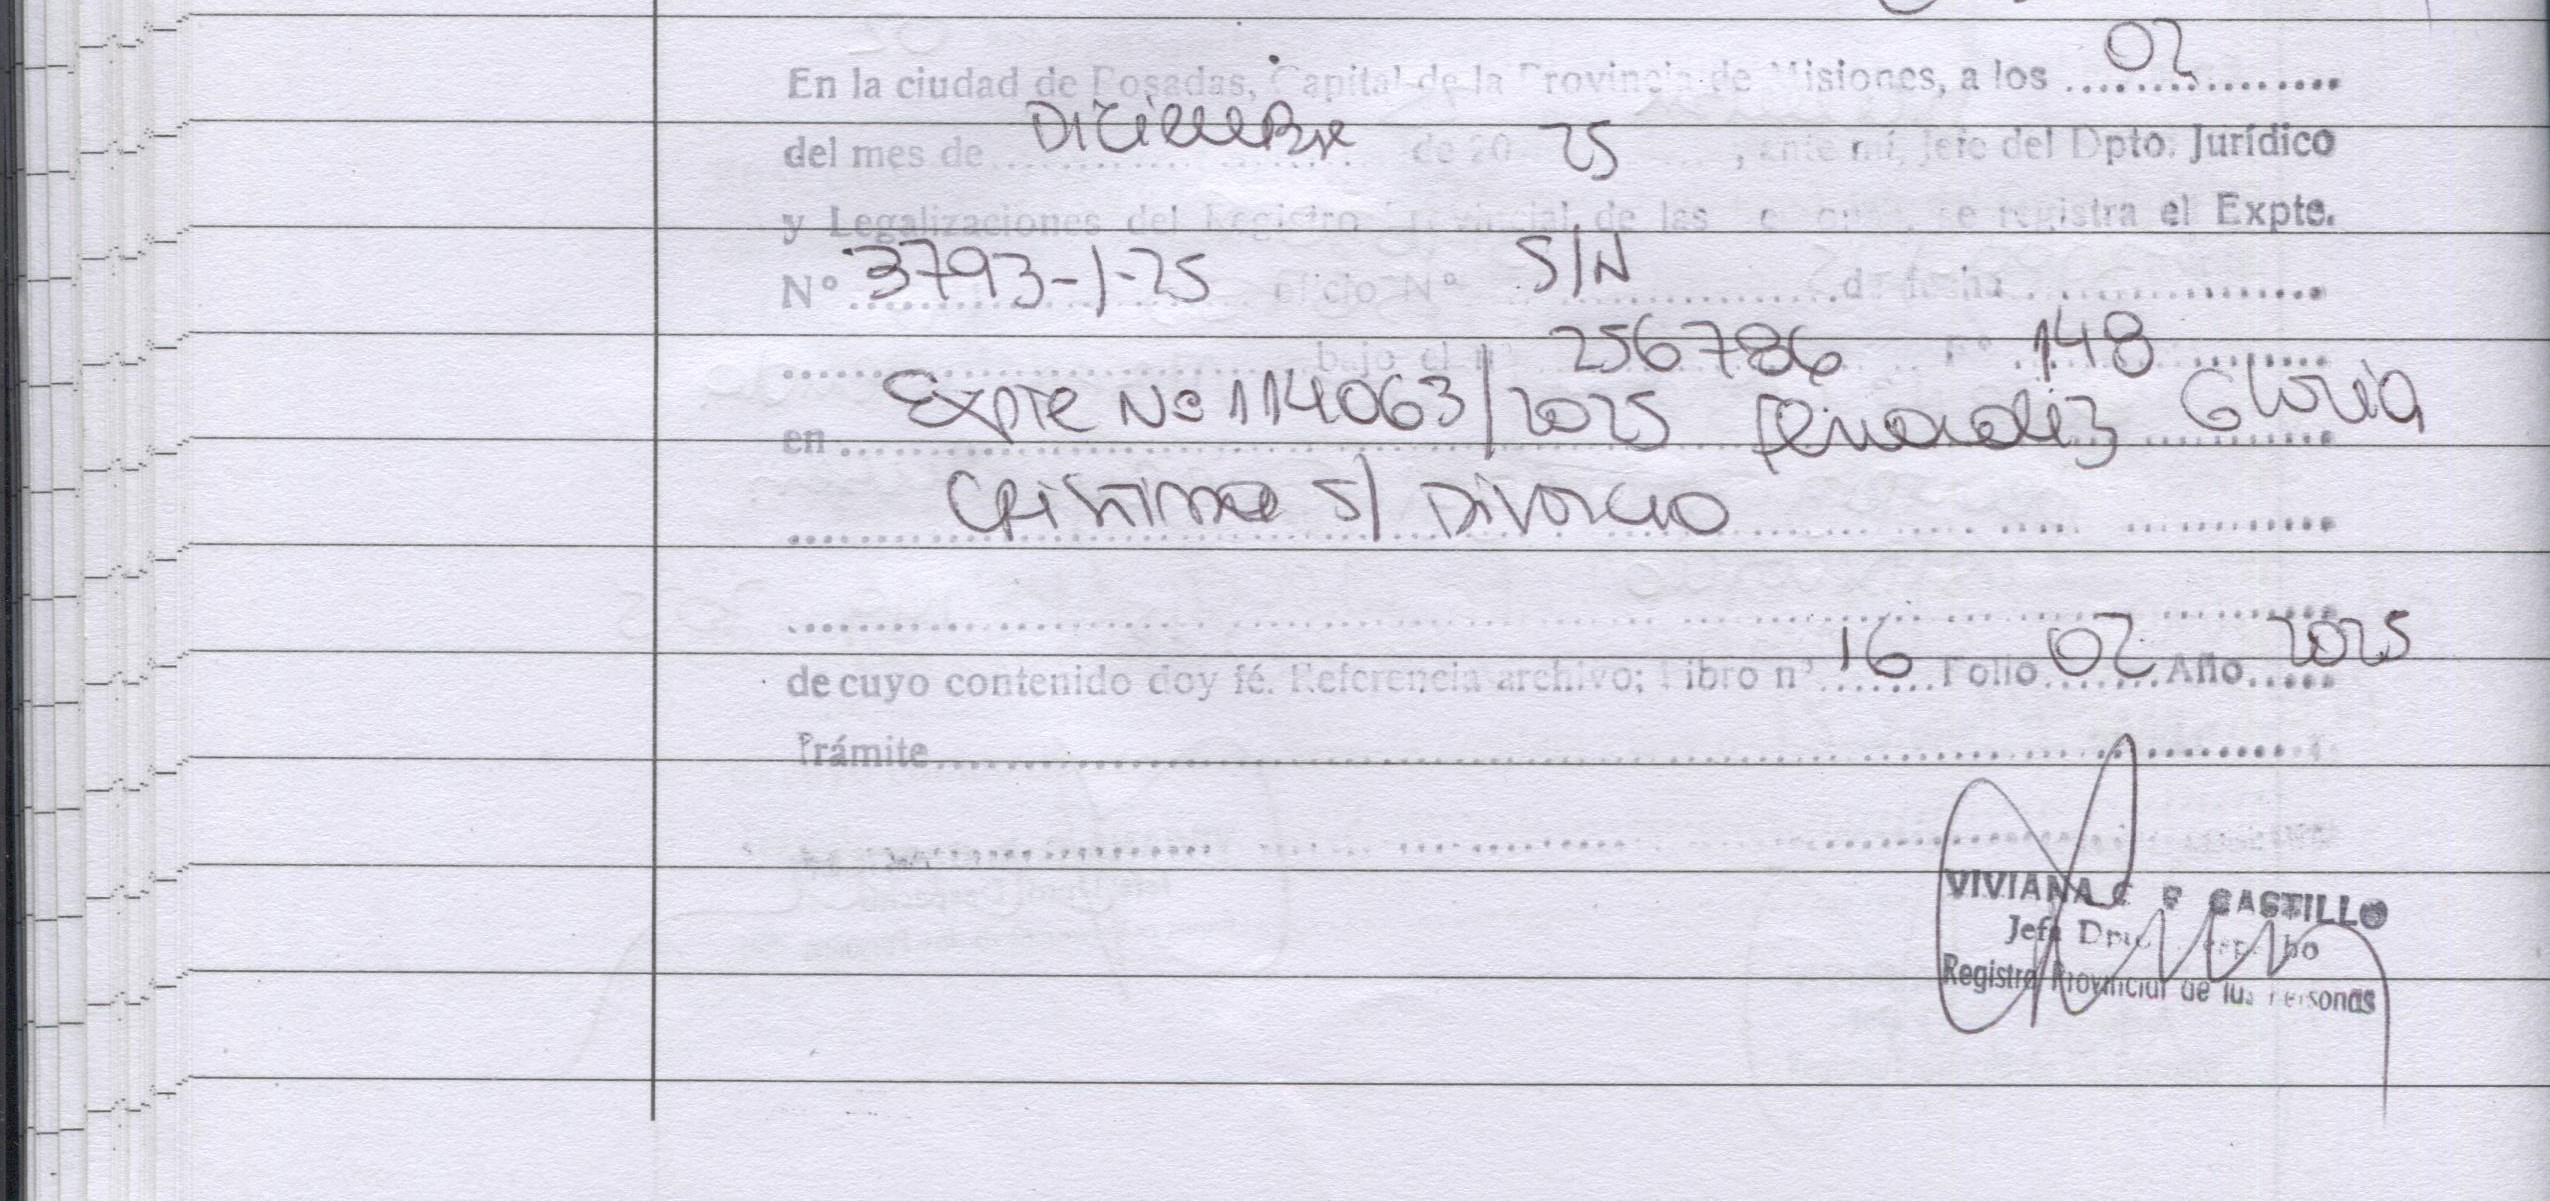 En la ciudad de Posadas, Capital de la Provincia de Misiones, a los 02
del mes de Diciembre de 20 25, ante mí, Jefe del Dpto. Jurídico
y Legalizaciones del Registro Provincial de las Personas, se registra el Expte.
N° 3793-1-25 oficio N° S/N de fecha
bajo el n° 256786 F° 148
en Expte No 114063/2025 Fernandez Gloria
Cristina S/ Divorcio
de cuyo contenido doy fé. Referencia archivo; Libro n° 16 Folio 02 Año 2025
Trámite
VIVIANA C CASTILLO
Jefa Dpto.
Registro Provincial de las Personas